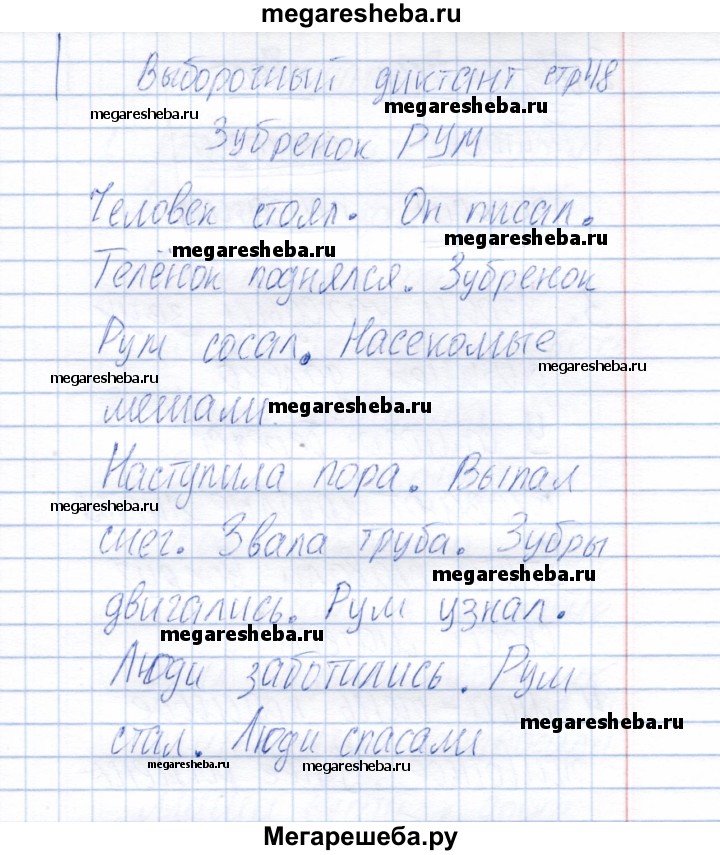 megaresheba.ru
Выборочный диктант стр48
megaresheba.ru megaresheba.ru
Зубренок РУМ
Человек стоял. Он писал.
megaresheba.ru megaresheba.ru
Телёнок поднялся. Зубренок
Рум сосал. Насекомые
megaresheba.ru megaresheba.ru
мешали. megaresheba.ru
Наступила пора. Выпал
megaresheba.ru
снег. Звала труба. Зубры
megaresheba.ru
двигались. Рум узнал.
megaresheba.ru
Люди заботились. Рум
megaresheba.ru
стал. Люди спасали
megaresheba.ru megaresheba.ru
Мегарешеба.ру